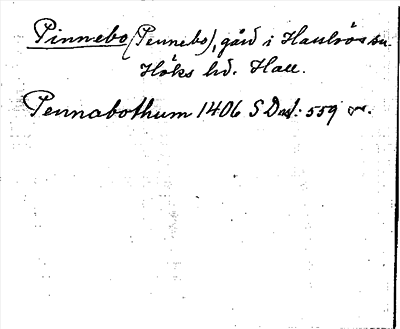 Pinnebo (Pennebo), gård i Hasslövs sn.
Höks hd. Hall.
Pennabothum 1406 SD nf: 559 or.